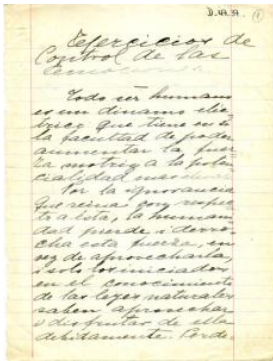 D.47.37. (1)
Ejercicios de
Control de las
Emociones.
Todo ser humano
es un dinamo eléc-
trico que tiene en sí
la facultad de poder
aumentar la fuer-
za motriz a la poten-
cialidad
Por la ignorancia
que reina con respec-
to a esta, la humani-
dad pierde i derro-
cha esta fuerza, en
vez de aprovecharla,
i solo los iniciados
en el conocimiento
de las leyes naturales
saben aprovechar
o disfrutar de ella
debidamente. Por de